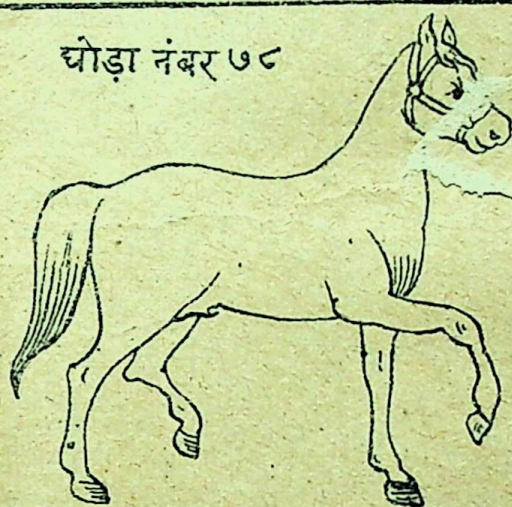 घोड़ा नंबर ७८